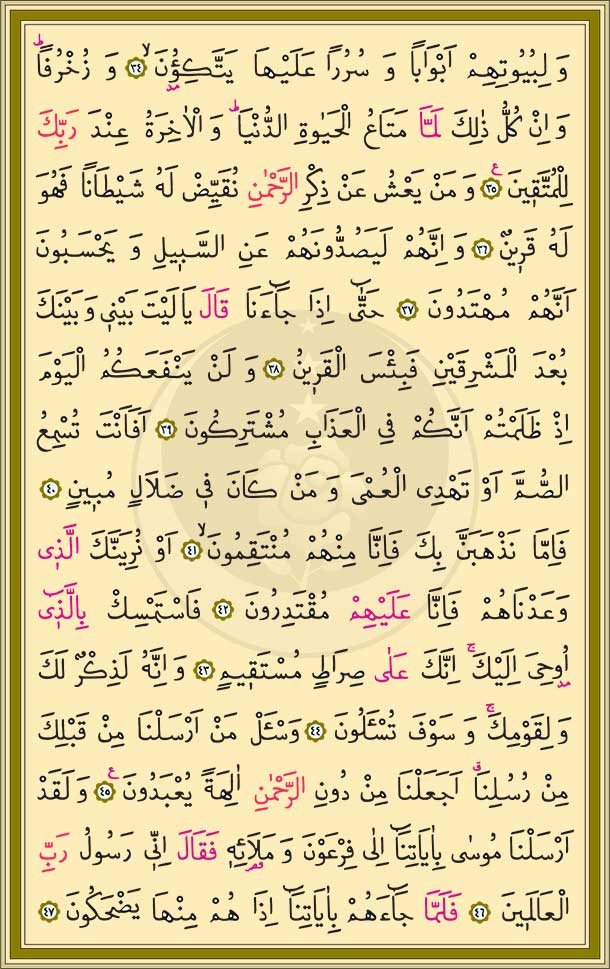 وَ لِبُيُوتِهِمْ اَبْوَاباً وَ سُرُراً عَلَيْهَا يَتَّكِؤُ۫نَۙ ﴿٣٤﴾ وَ زُخْرُفاًؕ
وَ اِنْ كُلُّ ذٰلِكَ لَمَّا مَتَاعُ الْحَيٰوةِ الدُّنْيَاؕ وَ الْاٰخِرَةُ عِنْدَ رَبِّكَ
لِلْمُتَّق۪ينَࣖ ﴿٣٥﴾ وَ مَنْ يَعْشُ عَنْ ذِكْرِ الرَّحْمٰنِ نُقَيِّضْ لَهُ شَيْطَاناً فَهُوَ
لَهُ قَر۪ينٌ ﴿٣٦﴾ وَ اِنَّهُمْ لَيَصُدُّونَهُمْ عَنِ السَّب۪يلِ وَ يَحْسَبُونَ
اَنَّهُمْ مُهْتَدُونَ ﴿٣٧﴾ حَتّٰٓى اِذَا جَٓاءَنَا قَالَ يَالَيْتَ بَيْن۪ي وَ بَيْنَكَ
بُعْدَ الْمَشْرِقَيْنِ فَبِئْسَ الْقَر۪ينُ ﴿٣٨﴾ وَ لَنْ يَنْفَعَكُمُ الْيَوْمَ
اِذْ ظَلَمْتُمْ اَنَّكُمْ فِي الْعَذَابِ مُشْتَرِكُونَ ﴿٣٩﴾ اَفَاَنْتَ تُسْمِعُ
الصُّمَّ اَوْ تَهْدِي الْعُمْيَ وَ مَنْ كَانَ ف۪ي ضَلَالٍ مُب۪ينٍ ﴿٤٠﴾
فَاِمَّا نَذْهَبَنَّ بِكَ فَاِنَّا مِنْهُمْ مُنْتَقِمُونَۙ ﴿٤١﴾ اَوْ نُرِيَنَّكَ الَّذ۪ي
وَعَدْنَاهُمْ فَاِنَّا عَلَيْهِمْ مُقْتَدِرُونَ ﴿٤٢﴾ فَاسْتَمْسِكْ بِالَّذ۪ٓي
اُو۫حِيَ اِلَيْكَۚ اِنَّكَ عَلٰى صِرَاطٍ مُسْتَق۪يمٍ ﴿٤٣﴾ وَ اِنَّهُ لَذِكْرٌ لَكَ
وَ لِقَوْمِكَۚ وَ سَوْفَ تُسْـَٔلُونَ ﴿٤٤﴾ وَسْـَٔلْ مَنْ اَرْسَلْنَا مِنْ قَبْلِكَ
مِنْ رُسُلِنَاۗ اَجَعَلْنَا مِنْ دُونِ الرَّحْمٰنِ اٰلِهَةً يُعْبَدُونَࣖ ﴿٤٥﴾ وَ لَقَدْ
اَرْسَلْنَا مُوسٰى بِاٰيَاتِنَٓا اِلٰى فِرْعَوْنَ وَ مَلَا۬ئِه۪ فَقَالَ اِنّ۪ي رَسُولُ رَبِّ
الْعَالَم۪ينَ ﴿٤٦﴾ فَلَمَّا جَٓاءَهُمْ بِاٰيَاتِنَٓا اِذَا هُمْ مِنْهَا يَضْحَكُونَ ﴿٤٧﴾